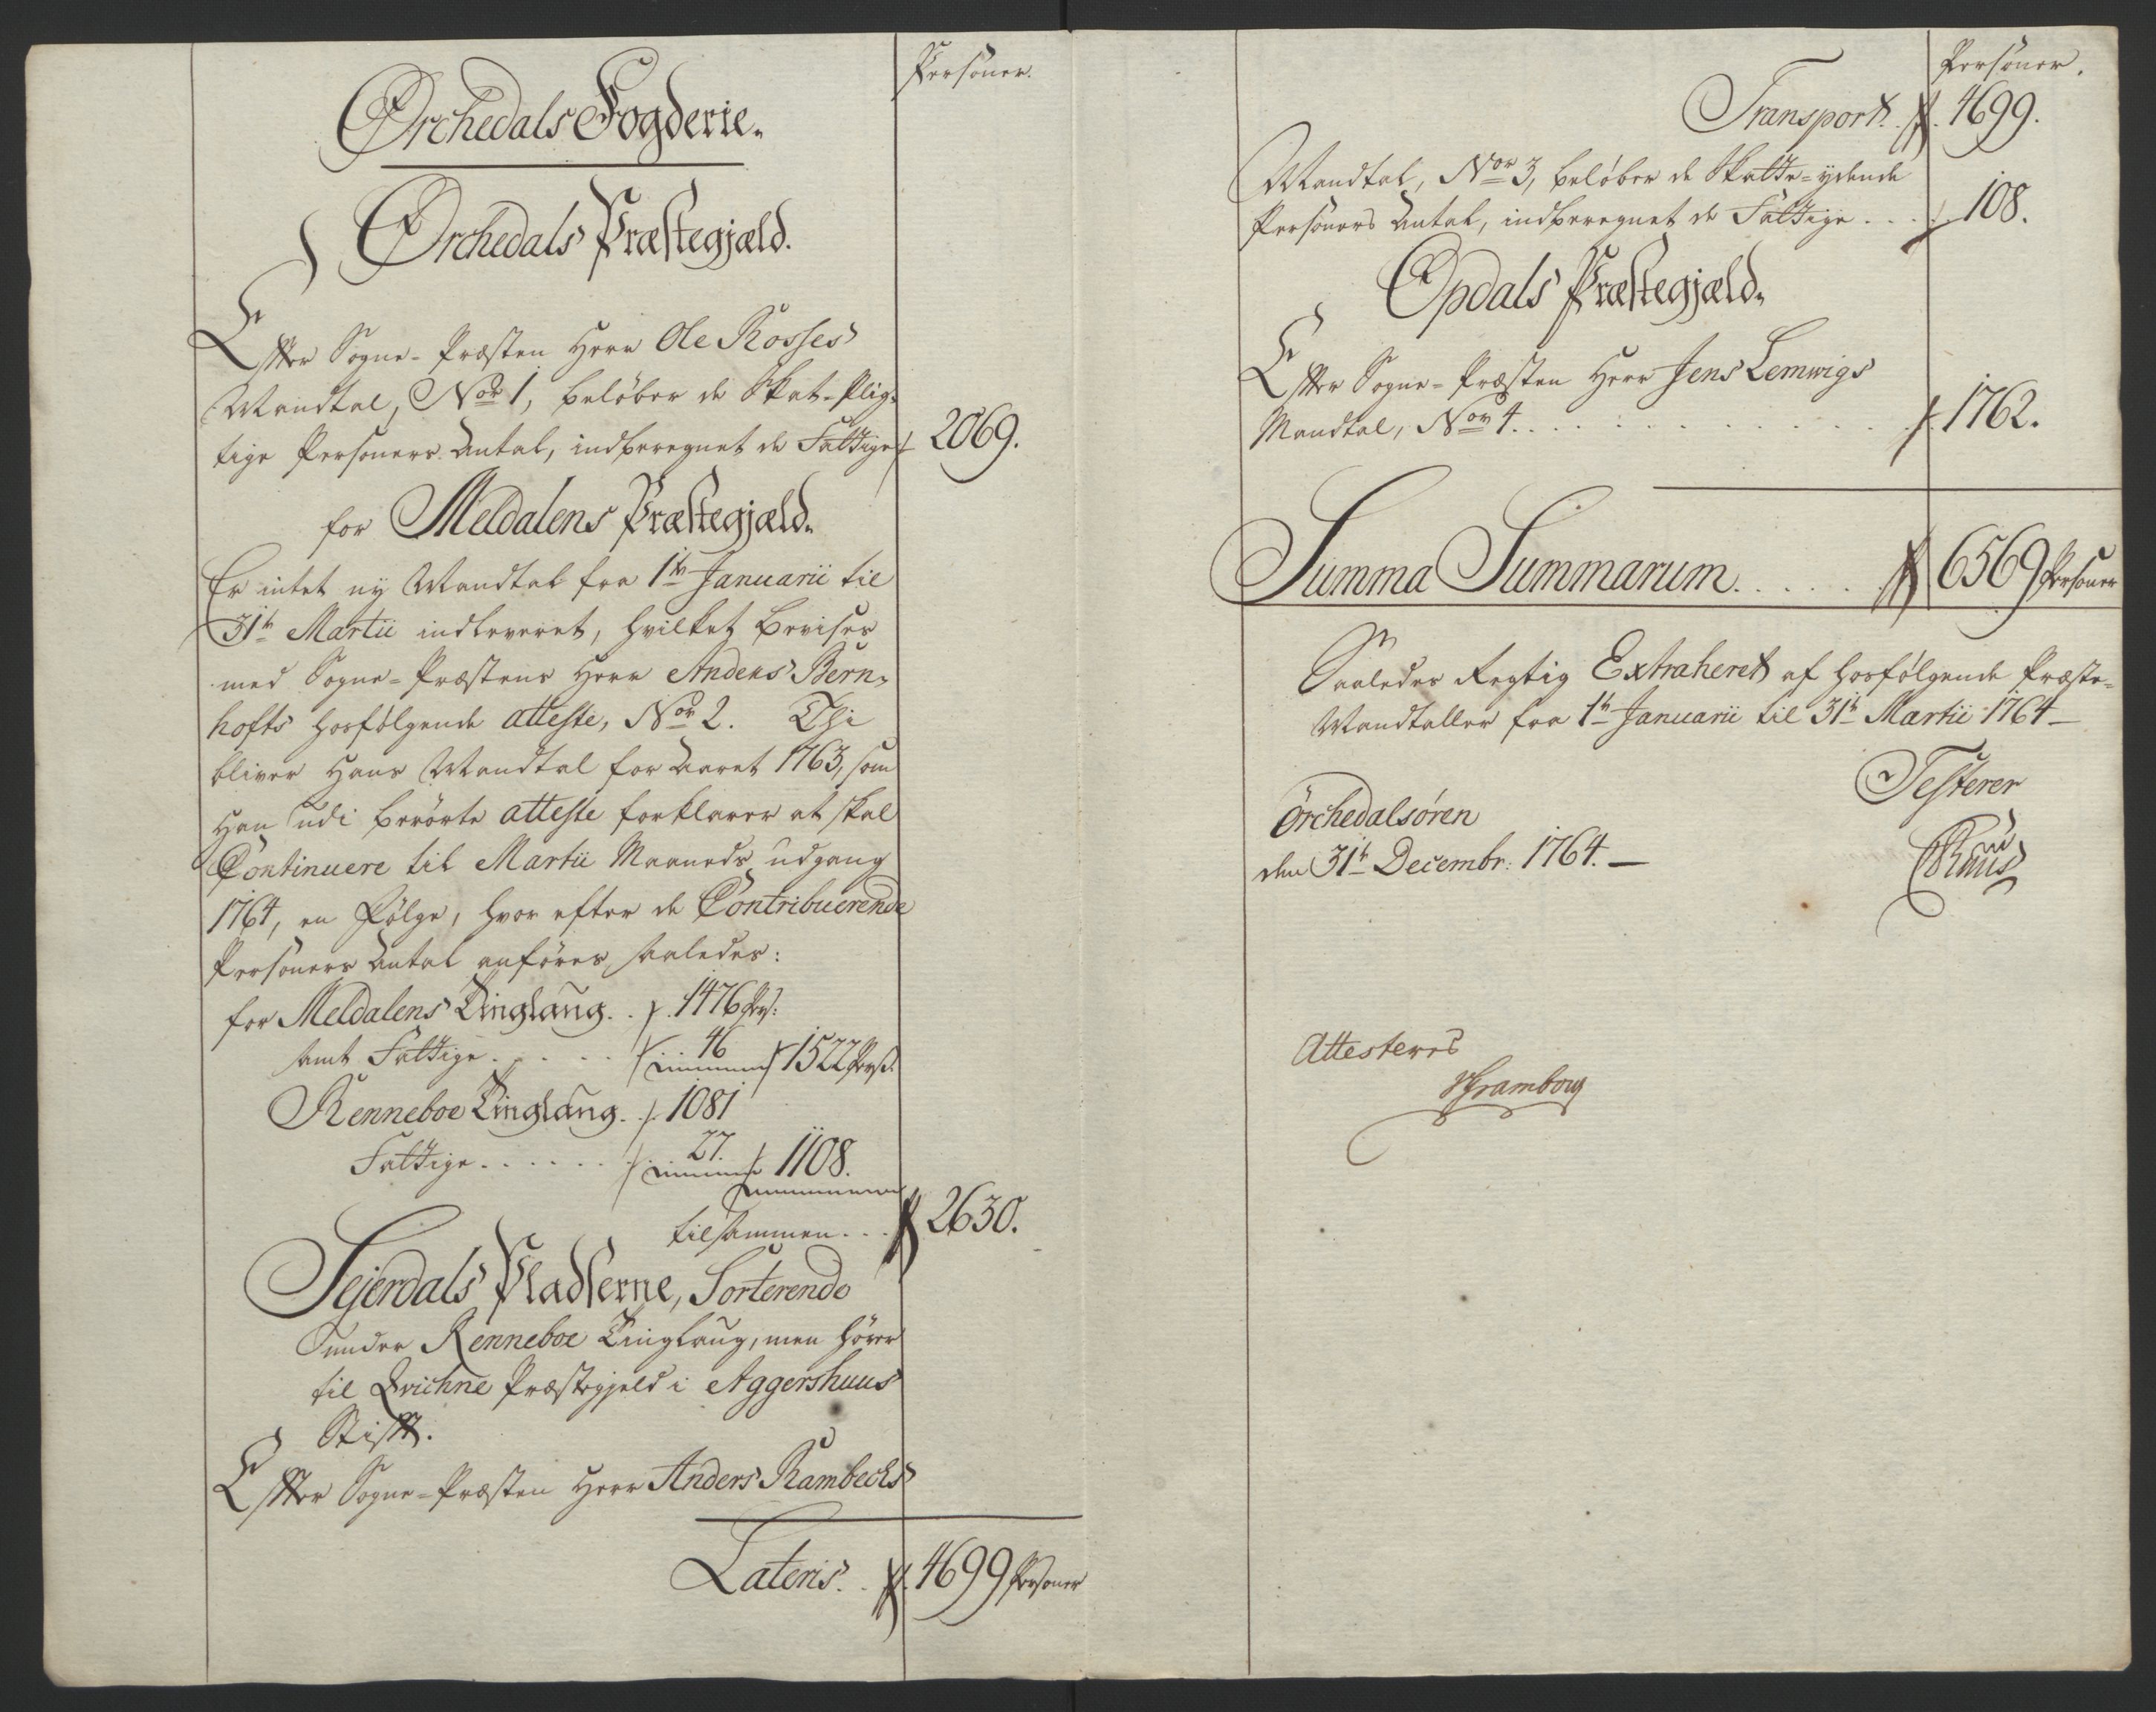 Personer.
Örchedals Fogderie.
Örchedals Præstegjæld.
Effter Sogne-Præsten Herr Ole Rosses
Mandtal, No 1, beløber de Skat-Plig-
tige Personers Antal, indberegnet de Fattige
2069.
for Meldalens Præstegjæld.
Er intet ny Mandtal fra 1te Januarii til
31te Martii indleveret, hvilket bevises
med Sogne-Præstens Herr Anders Bern-
hofts hosfølgende atteste, No 2. Thi
bliver Hans Mandtal for Aaret 1763, som
Han udi berörte atteste forklarer at skal
Continuere til Martii Maaneds udgang
1764, en Fölge, hvor efter de Contribuerende
Personers Antal anföres saaledes:
for Meldalens Tinglaug. . 1476 Pers:
samt Fattige . . . . . 46 1522 Pers:
Renneboe Tinglaug. . 1081
Fattige . . . . . . 27. 1108.
tilsammen . . . 2630.
Sejerdals Pladserne, Sorterende
under Renneboe Tinglaug, men hörer
til Qvichne Præstegjeld i Aggershuus
Stifft.
Effter Sogne-Præsten Herr Anders Rambechs
Lateris. . 4699 Personer
Personer.
Transport. . 4699.
Mandtal, No 3, beløber de Skatte-ydende
Personers Antal, indberegnet de Fattige . . . 108.
Opdals Præstegjæld.
Effter Sogne-Præsten Herr Jens Lemwigs
Mandtal, No 4. . . . . . . . . 1762.
Summa Summarum. . . . . . 6569 Personer
Saaledes Rigtig Extraheret af hosfølgende Præste-
Mandtaller fra 1te Januarii til 31te Martii 1764
Testerer
Örchedalsøren
den 31te Decembr: 1764.
Attesteres